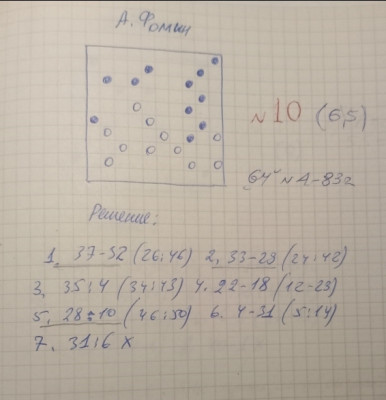 А. Фомин
№10 (6,5)
64" №4-83г
Решение:
1. 37-32 (26:46) 2. 33-29 (24:42)
3. 35:4 (34:43) 4. 22-18 (12-23)
5. 28:10 (46:50) 6. 4-31 (5:14)
7. 31:6 X